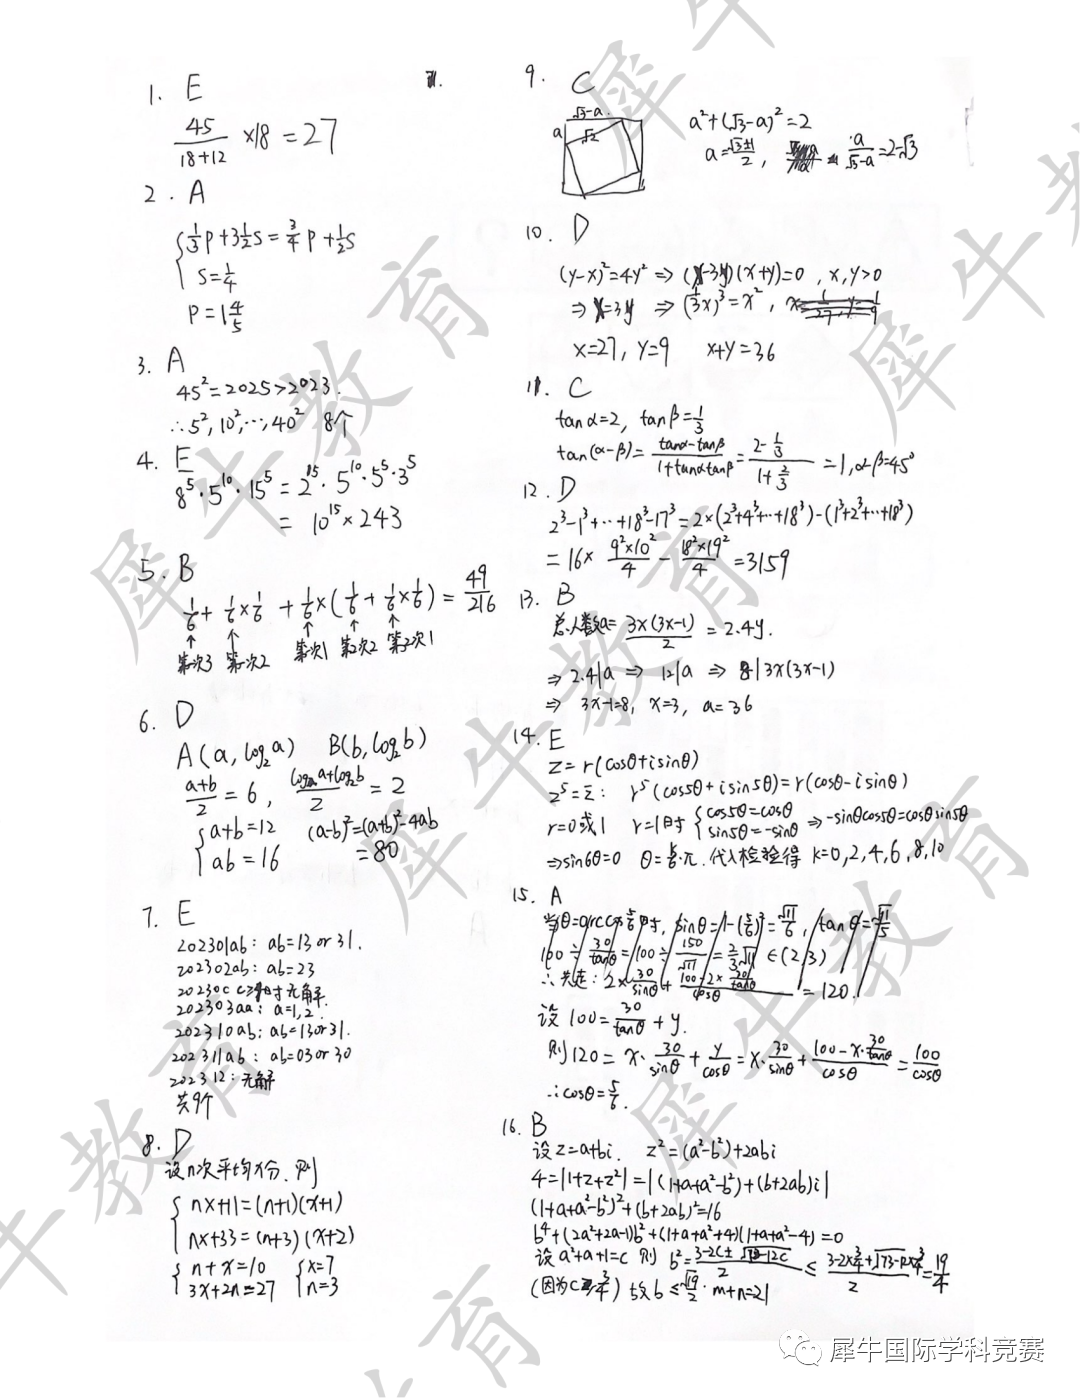 1. E
45/(18+12) ×18 = 27
2. A
{ 1/3 P + 3 1/2 S = 3/4 P + 1/2 S
S = 1/4
P = 1 4/5
3. A
45² = 2025 > 2023.
∴ 5², 10², ⋯, 40² 8个
4. E
8⁵·5¹⁰·15⁵ = 2¹⁵·5¹⁰·5⁵·3⁵
= 10¹⁵ × 243
5. B
1/6 + 1/6×1/6 + 1/6×(1/6 + 1/6×1/6) = 49/216
↑ ↑ ↑ ↑ ↑
第一次3 第一次2 第一次1 第2次2 第二次1
6. D
A(a, log₂a) B(b, log₂b)
(a+b)/2 = 6, (log₂a+log₂b)/2 = 2
{ a+b = 12 (a-b)² = (a+b)² - 4ab
ab = 16 = 80
7. E
202301ab: ab=13 or 31.
202302ab: ab=23
20230c c≥4时无解.
202303aa: a=1,2.
202310ab: ab=13 or 31.
202311ab: ab=03 or 30
202312: 无解
共9个
8. D
设n次平均x分, 则
{ nx+11=(n+1)(x+1)
nx+33=(n+3)(x+2)
{ n+x=10 { x=7
3x+2n=27 n=3
9. C
√3-a
a
√2
a²+(√3-a)²=2
a=(√3±1)/2, a/(√3-a)=2-√3
10. D
(y-x)²=4y² ⇒ (x-3y)(x+y)=0, x,y>0
⇒ x=3y ⇒ (1/3 x)³=x²,
x=27, y=9 x+y=36
11. C
tanα=2, tanβ=1/3
tan(α-β)= (tanα-tanβ)/(1+tanαtanβ) = (2-1/3)/(1+2/3) =1, α-β=45°
12. D
2³-1³+⋯+18³-17³=2×(2³+4³+⋯+18³)-(1³+2³+⋯+18³)
=16× (9²×10²)/4 - (18²×19²)/4 =3159
13. B
总人数a= 3x(3x-1)/2 = 2.4y.
⇒ 2.4|a ⇒ 12|a ⇒ 8|3x(3x-1)
⇒ 3x-1=8, x=3, a=36
14. E
z=r(cosθ+isinθ)
z⁵=z̄: r⁵(cos5θ+isin5θ)=r(cosθ-isinθ)
r=0或1 r=1时 { cos5θ=cosθ sin5θ=-sinθ ⇒ -sinθcos5θ=cosθsin5θ
⇒sin6θ=0 θ=k/6·π. 代入检验得 k=0,2,4,6,8,10
15. A
当θ=arccos 5/6时, sinθ=√1-(5/6)²=√11/6, tanθ=√11/5
100÷30/tanθ=100÷150/√11=2/3√11∈(2,3)
∴共走: 2×30/sinθ+(100-2×30/tanθ)/cosθ=120.
设 100= 30/tanθ + y.
则120= x·30/sinθ + y/cosθ = x·30/sinθ + (100-x·30/tanθ)/cosθ = 100/cosθ
∴cosθ=5/6.
16. B
设z=a+bi. z²=(a²-b²)+2abi
4=|1+z+z²|=|(1+a+a²-b²)+(b+2ab)i|
(1+a+a²-b²)²+(b+2ab)²=16
b⁴+(2a²+2a-1)b²+(1+a+a²+4)(1+a+a²-4)=0
设a²+a+1=c 则 b²=(3-2c±√73-12c)/2 ≤ (3-2×3/4+√73-12×3/4)/2=19/4
(因为c≥3/4) 故b≤√19/2. m+n=21
犀牛教育
犀牛国际学科竞赛